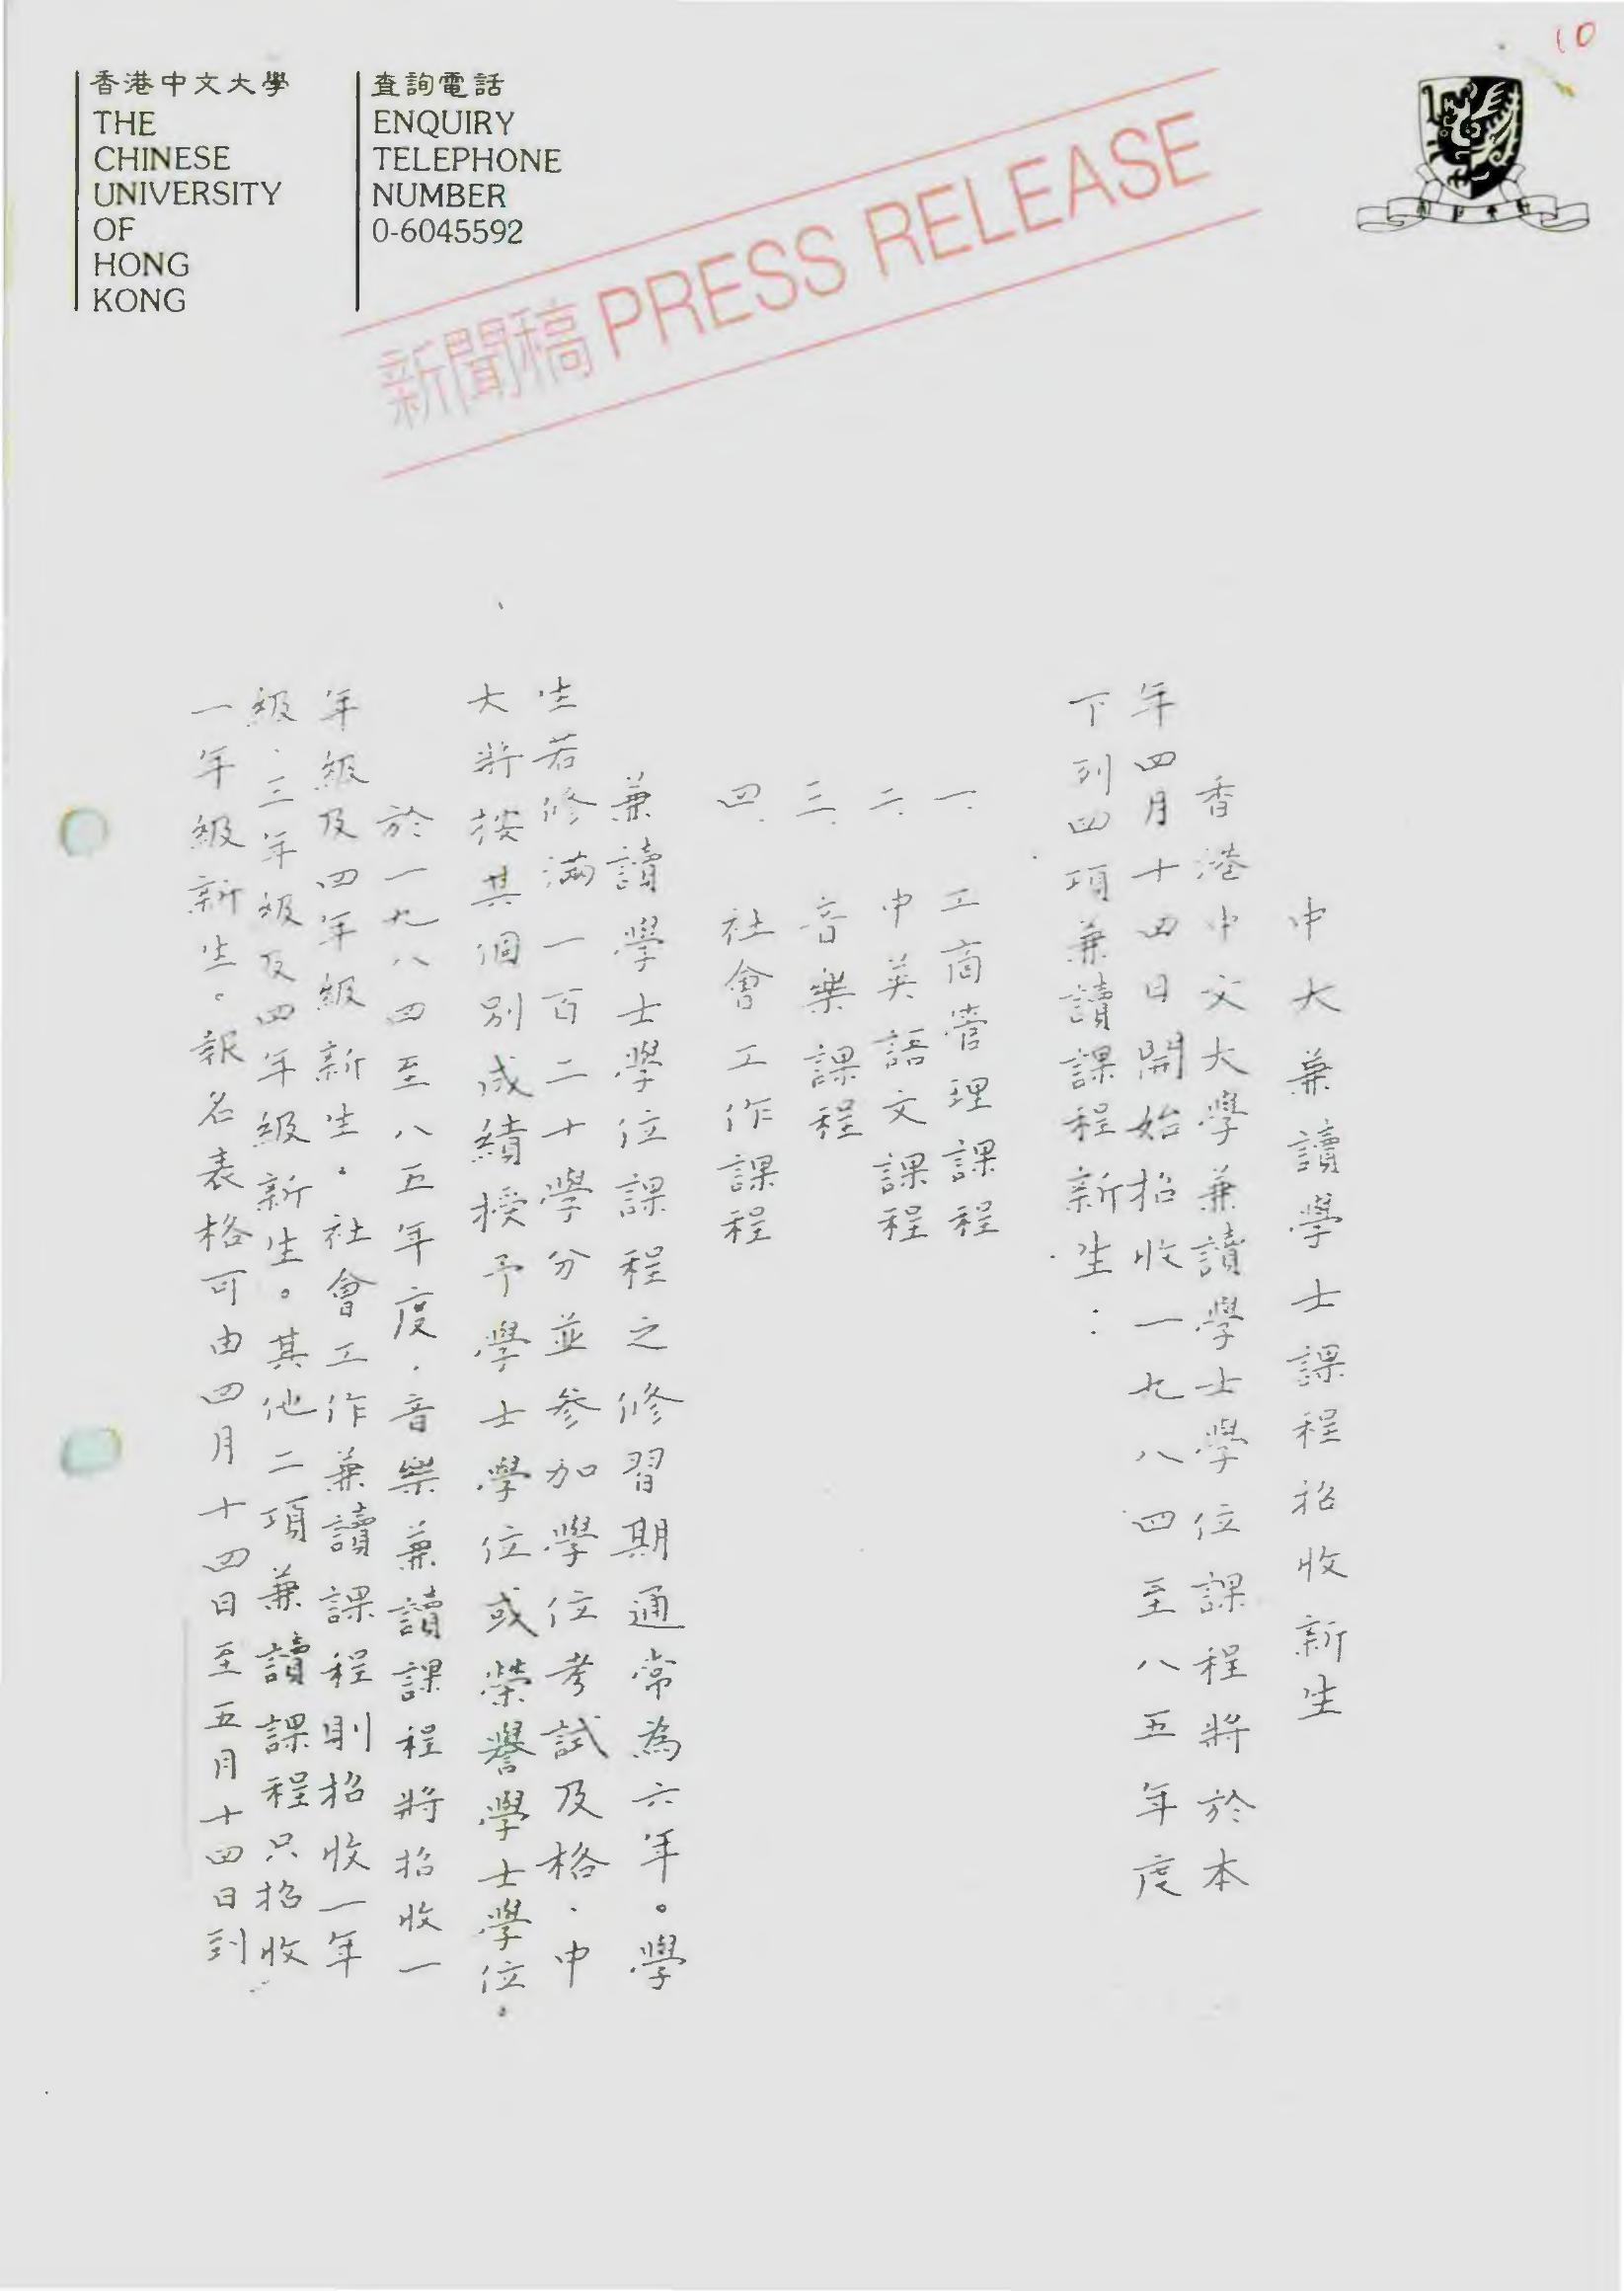 10
香港中文大學
THE
CHINESE
UNIVERSITY
OF
HONG
KONG
查詢電話
ENQUIRY
TELEPHONE
NUMBER
0-6045592
新聞稿 PRESS RELEASE
中大兼讀學士課程招收新生
香港中文大學兼讀學士學位課程將於本
年四月十四日開始招收一九八四至八五年度
下列四項兼讀課程新生：
一. 工商管理課程
二. 中英語文課程
三. 音樂課程
四. 社會工作課程
兼讀學士學位課程之修習期通常為六年。學
生若修滿一百二十學分並參加學位考試及格，中
大將按其個別成績授予學士學位或榮譽學士學位。
於一九八四至八五年度，音樂兼讀課程將招收一
年級及四年級新生。社會工作兼讀課程則招收一年
級，三年級及四年級新生。其他二項兼讀課程只招收
一年級新生。報名表格可由四月十四日至五月十四日到